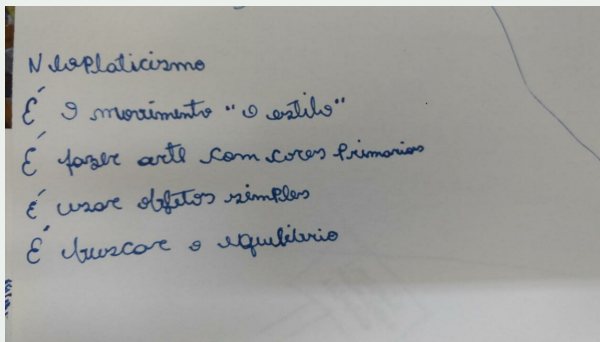 Neoplaticismo
É o movimento "o estilo"
É fazer arte com cores primarias
É usar objetos simples
É buscar o equilibrio